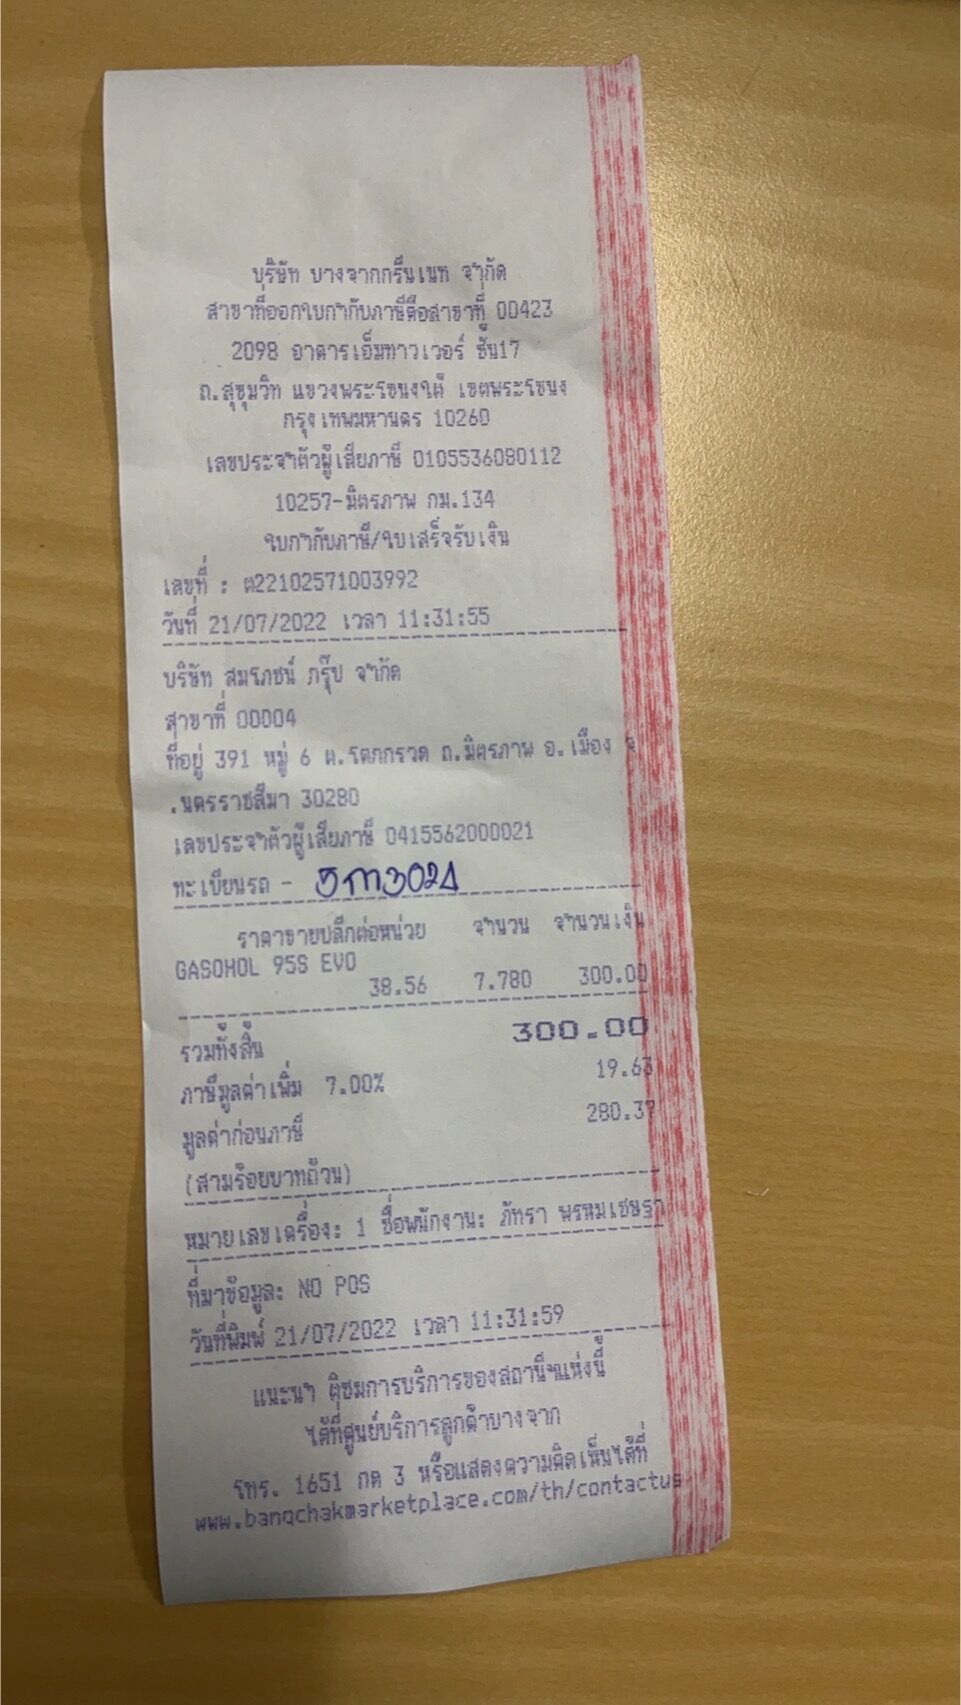 บริษัท บางจากกรีนเนท จำกัด
สาขาที่ออกใบกำกับภาษีคือสาขาที่ 00423
2098 อาคารเอ็มทาวเวอร์ ชั้น17
ถ.สุขุมวิท แขวงพระโขนงใต้ เขตพระโขนง
กรุงเทพมหานคร 10260
เลขประจำตัวผู้เสียภาษี 0105536080112
10257-มิตรภาพ กม.134
ใบกำกับภาษี/ใบเสร็จรับเงิน
เลขที่ : ต22102571003992
วันที่ 21/07/2022 เวลา 11:31:55
บริษัท สมโภชน์ กรุ๊ป จำกัด
สาขาที่ 00004
ที่อยู่ 391 หมู่ 6 ต.โคกกรวด ถ.มิตรภาพ อ.เมือง จ
.นครราชสีมา 30280
เลขประจำตัวผู้เสียภาษี 0415562000021
ทะเบียนรถ -
ราคาขายปลีกต่อหน่วย จำนวน จำนวนเงิน
GASOHOL 95S EVO
38.56 7.780 300.00
รวมทั้งสิ้น 300.00
ภาษีมูลค่าเพิ่ม 7.00% 19.63
มูลค่าก่อนภาษี 280.37
(สามร้อยบาทถ้วน)
หมายเลขเครื่อง: 1 ชื่อพนักงาน: ภัทรา
ที่มาข้อมูล: NO POS
วันที่พิมพ์ 21/07/2022 เวลา 11:31:59
แนะนำ ติชมการบริการของสถานีฯแห่งนี้
ได้ที่ศูนย์บริการลูกค้าบางจาก
โทร. 1651 กด 3 หรือแสดงความคิดเห็นได้ที่
www.bangchakmarketplace.com/th/contactus